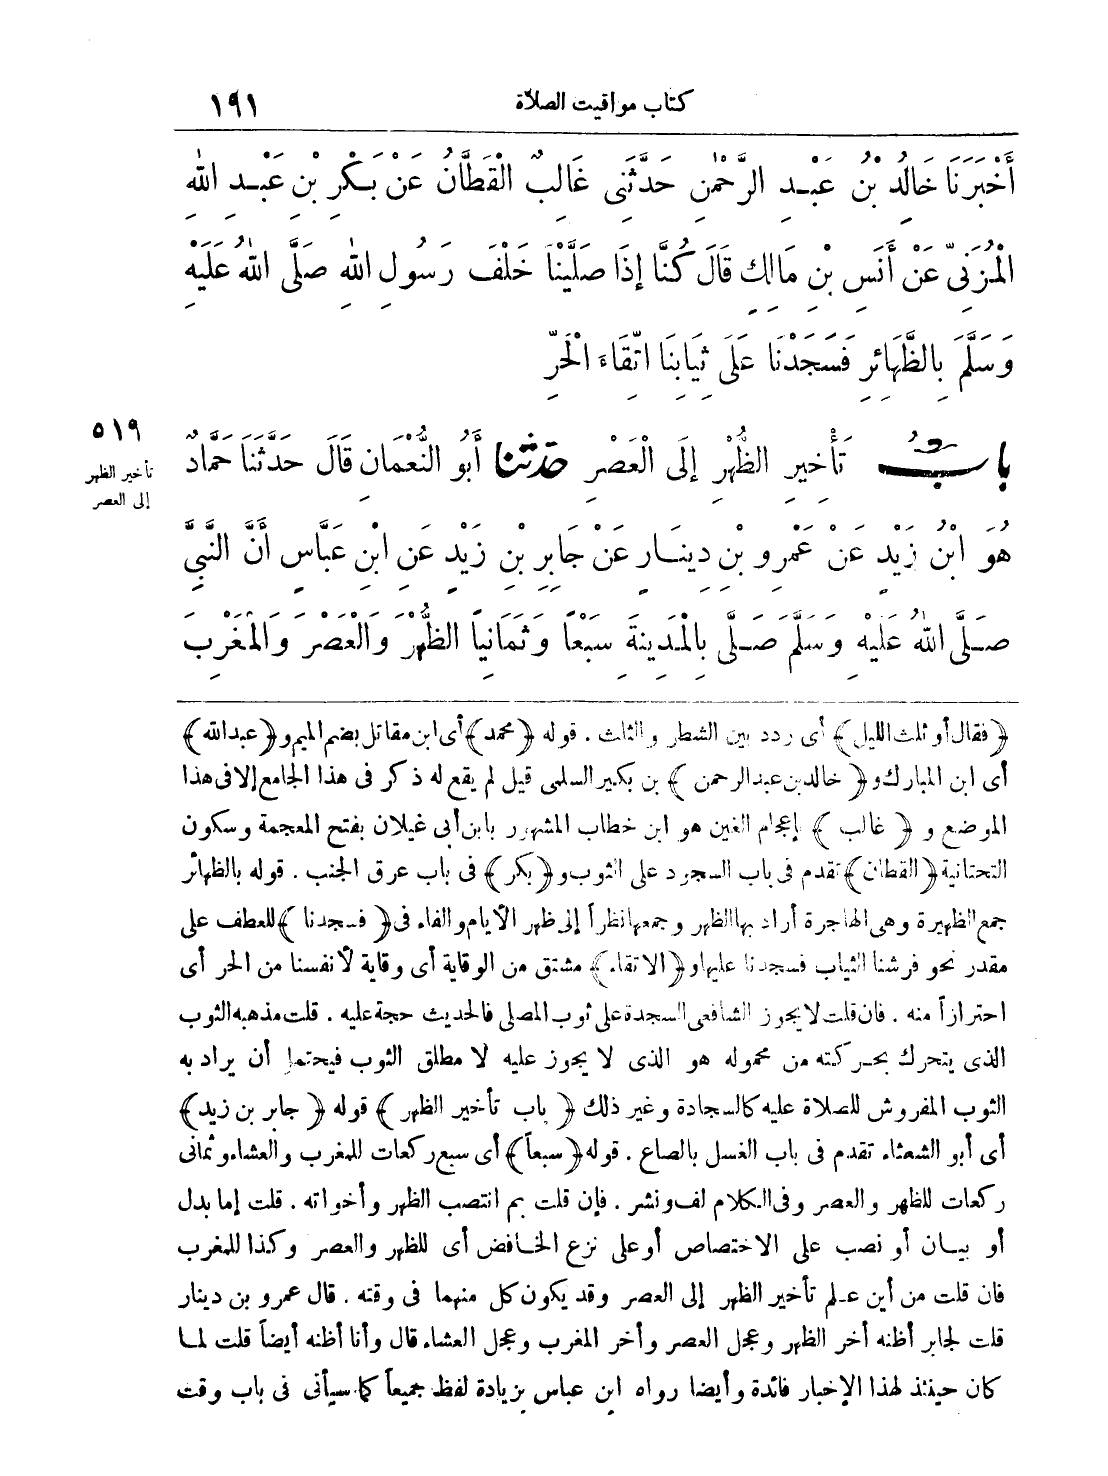 كتاب مواقيت الصلاة
١٩١
أَخْبَرَنَا خَالِدُ بْنُ عَبْدِ الرَّحْمٰنِ حَدَّثَنِى غَالِبٌ الْقَطَّانُ عَنْ بَكْرِ بْنِ عَبْدِ اللهِ
الْمُزَنِىِّ عَنْ أَنَسِ بْنِ مَالِكٍ قَالَ كُنَّا إِذَا صَلَّيْنَا خَلْفَ رَسُولِ اللهِ صَلَّى اللهُ عَلَيْهِ
وَسَلَّمَ بِالظَّهَائِرِ فَسَجَدْنَا عَلَى ثِيَابِنَا اتِّقَاءَ الْحَرِّ
٥١٩
تأخير الظهر
إلى العصر
بابُ تَأْخِيرِ الظُّهْرِ إِلَى الْعَصْرِ حَدَّثَنَا أَبُو النُّعْمَانِ قَالَ حَدَّثَنَا حَمَّادٌ
هُوَ ابْنُ زَيْدٍ عَنْ عَمْرِو بْنِ دِينَارٍ عَنْ جَابِرِ بْنِ زَيْدٍ عَنِ ابْنِ عَبَّاسٍ أَنَّ النَّبِىَّ
صَلَّى اللهُ عَلَيْهِ وَسَلَّمَ صَلَّى بِالْمَدِينَةِ سَبْعًا وَثَمَانِياً الظُّهْرَ وَالْعَصْرَ وَالْمَغْرِبَ
﴿فقال أو ثلث الليل﴾ أى ردد بين الشطر والثلث . قوله ﴿محمد﴾ أى ابن مقاتل بضم الميم و﴿عبد الله﴾
أى ابن المبارك و﴿خالد بن عبد الرحمن﴾ بن بكير السلمى قيل لم يقع له ذكر فى هذا الجامع إلا فى هذا
الموضع و ﴿غالب﴾ إعجام الغين هو ابن خطاب المشهور بابن أبى غيلان بفتح المعجمة وسكون
التحتانية ﴿القطان﴾ تقدم فى باب السجود على الثوب و﴿بكر﴾ فى باب عرق الجنب . قوله بالظهائر
جمع الظهيرة وهى الهاجرة أراد بها الظهر وجمعها نظراً إلى ظهر الأيام والفاء فى ﴿فسجدنا﴾ للعطف على
مقدر نحو فرشنا الثياب فسجدنا عليها و﴿الاتقاء﴾ مشتق من الوقاية أى وقاية لأنفسنا من الحر أى
احترازاً منه . فان قلت لا يجوز الشافعى السجدة على ثوب المصلى فالحديث حجة عليه . قلت مذهبه الثوب
الذى يتحرك بحركته من محموله هو الذى لا يجوز عليه لا مطلق الثوب فيحتمل أن يراد به
الثوب المفروش للصلاة عليه كالسجادة وغير ذلك ﴿باب تأخير الظهر﴾ قوله ﴿جابر بن زيد﴾
أى أبو الشعثاء تقدم فى باب الغسل بالصاع . قوله ﴿سبعاً﴾ أى سبع ركعات للمغرب والعشاء وثمانى
ركعات للظهر والعصر وفى الكلام لف ونشر . فإن قلت بم انتصب الظهر وأخواته . قلت إما بدل
أو بيان أو نصب على الاختصاص أو على نزع الخافض أى للظهر والعصر وكذا للمغرب
فان قلت من أين علم تأخير الظهر إلى العصر وقد يكون كل منهما فى وقته . قال عمرو بن دينار
قلت لجابر أظنه أخر الظهر وعجل العصر وأخر المغرب وعجل العشاء قال وأنا أظنه أيضاً قلت لما
كان حينئذ لهذا الإخبار فائدة وأيضا رواه ابن عباس بزيادة لفظ جميعاً كما سيأتى فى باب وقت